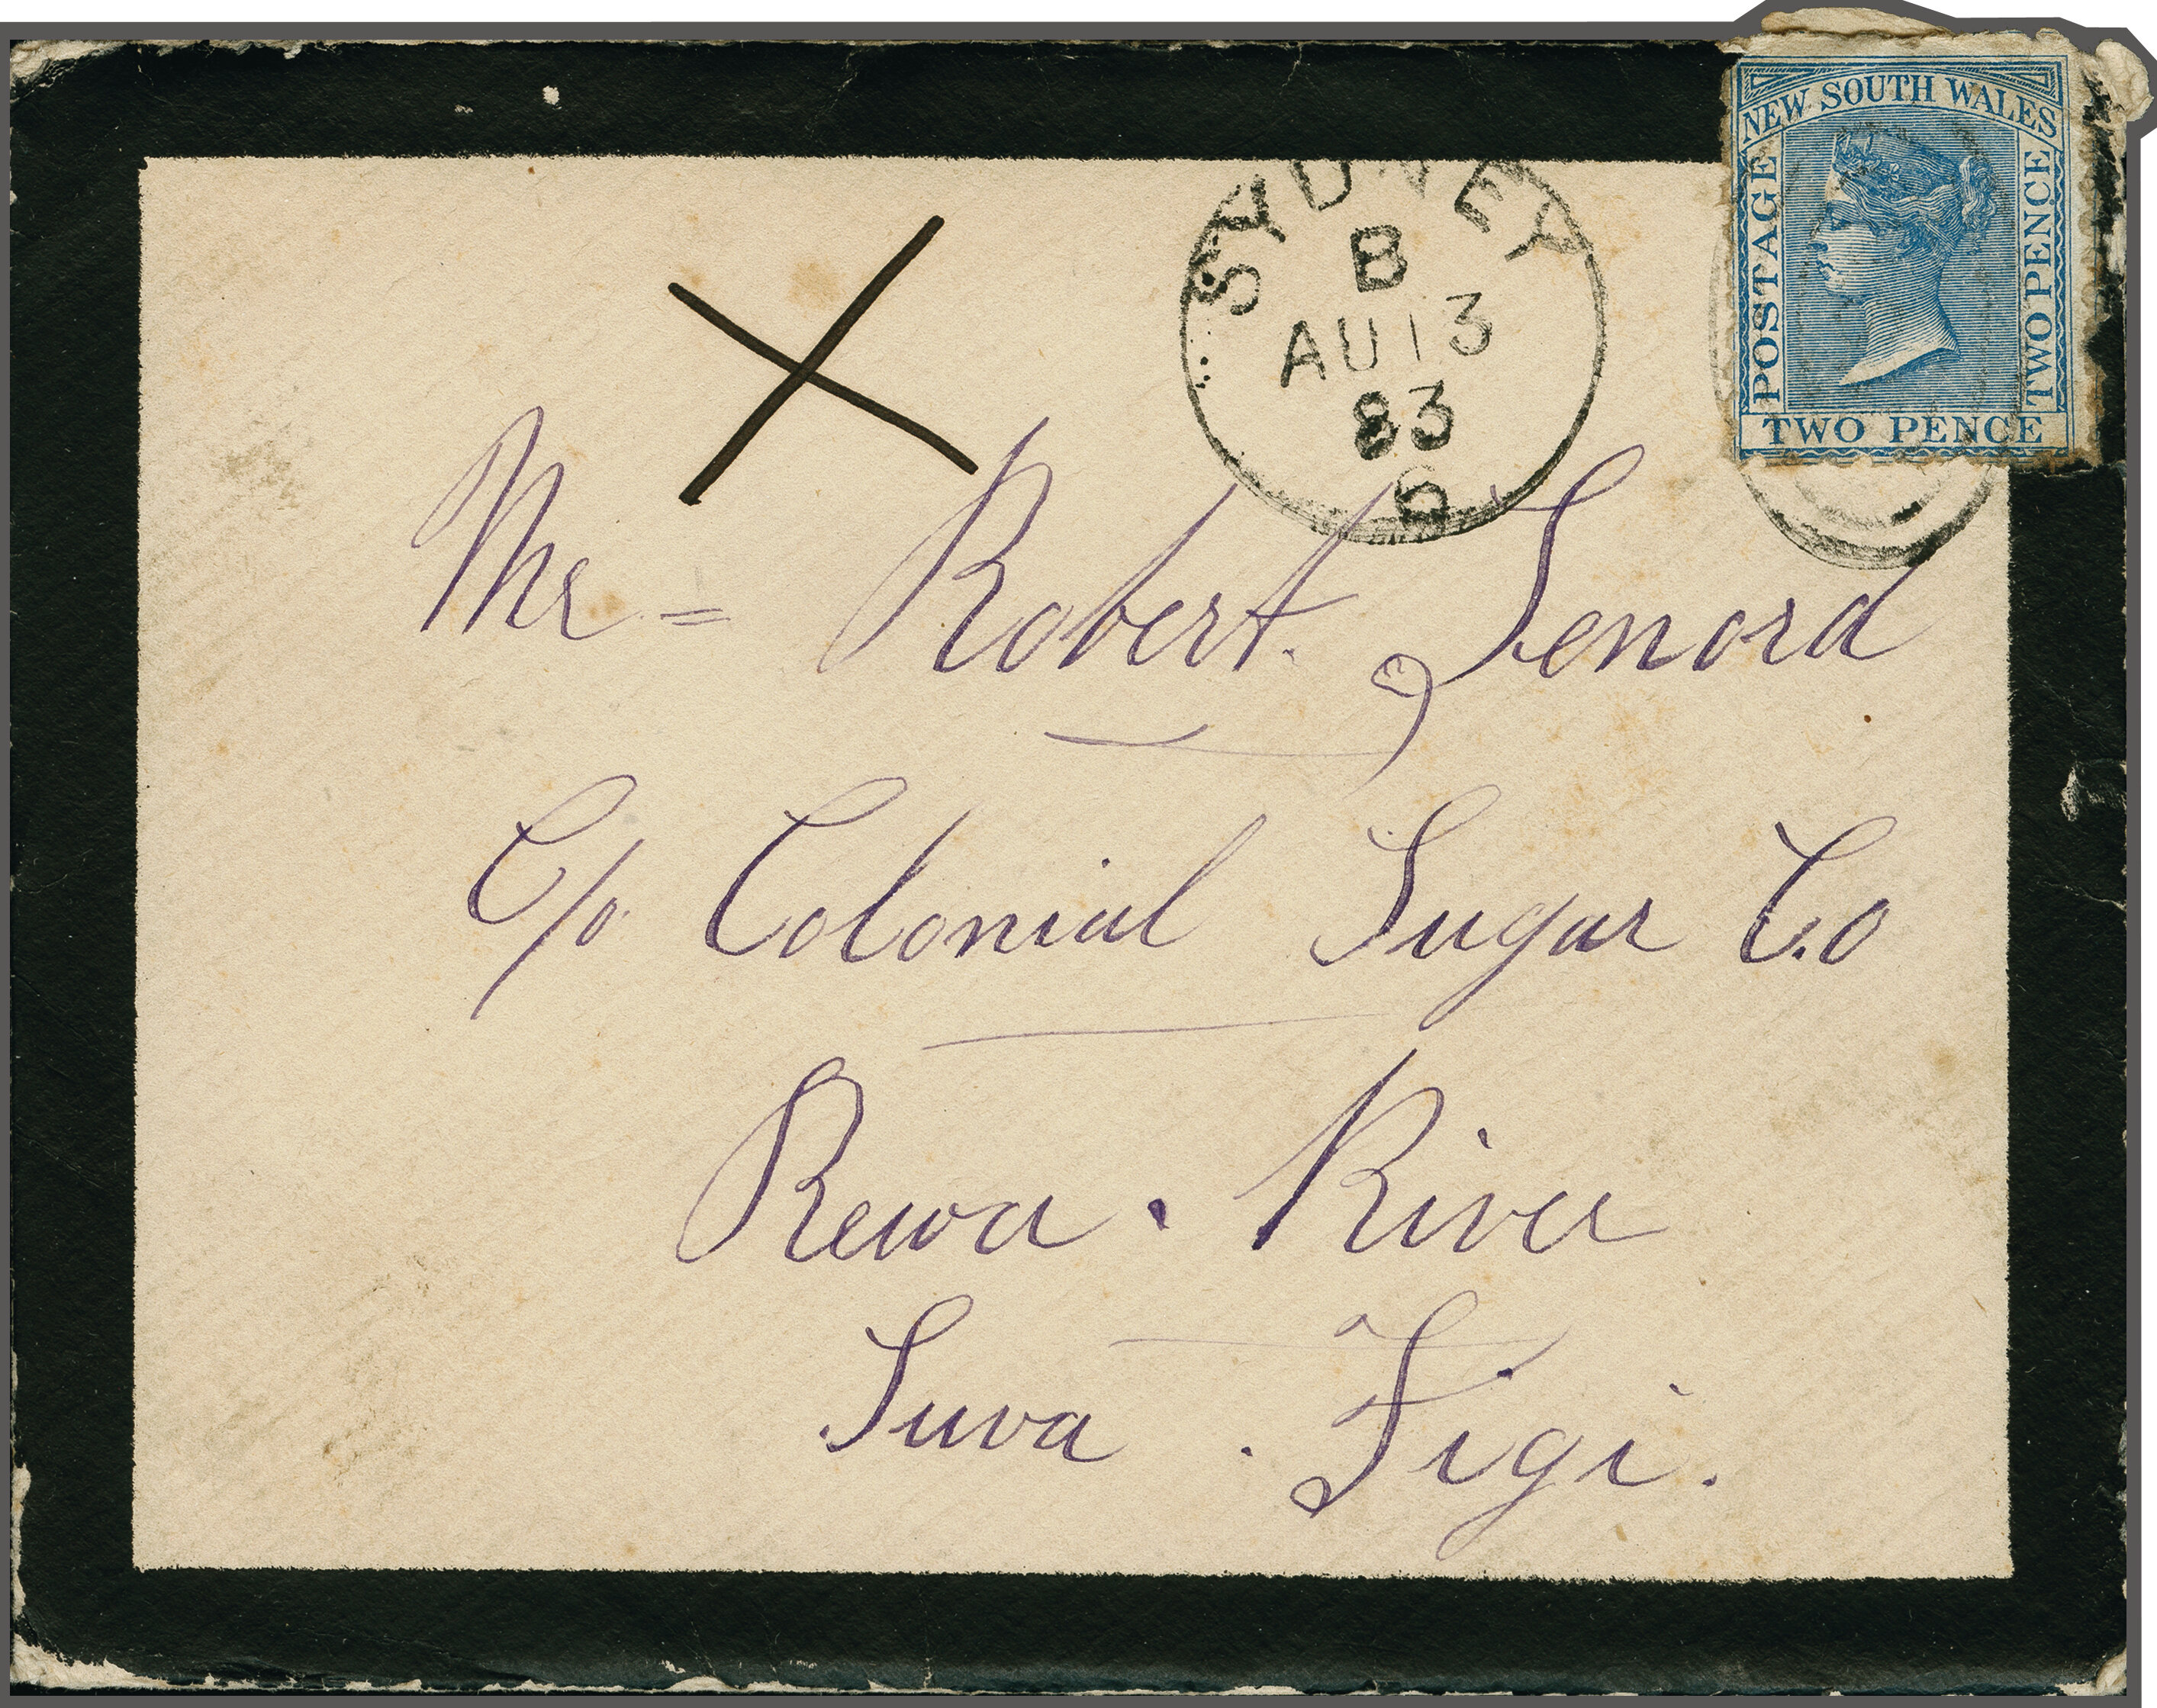 NEW SOUTH WALES
POSTAGE
TWO PENCE
TWO PENCE
SYDNEY
B
AU 13
83
6
Mr = Robert. Lenord
C/o Colonial Sugar Co
Rewa . River
Suva . Figi.